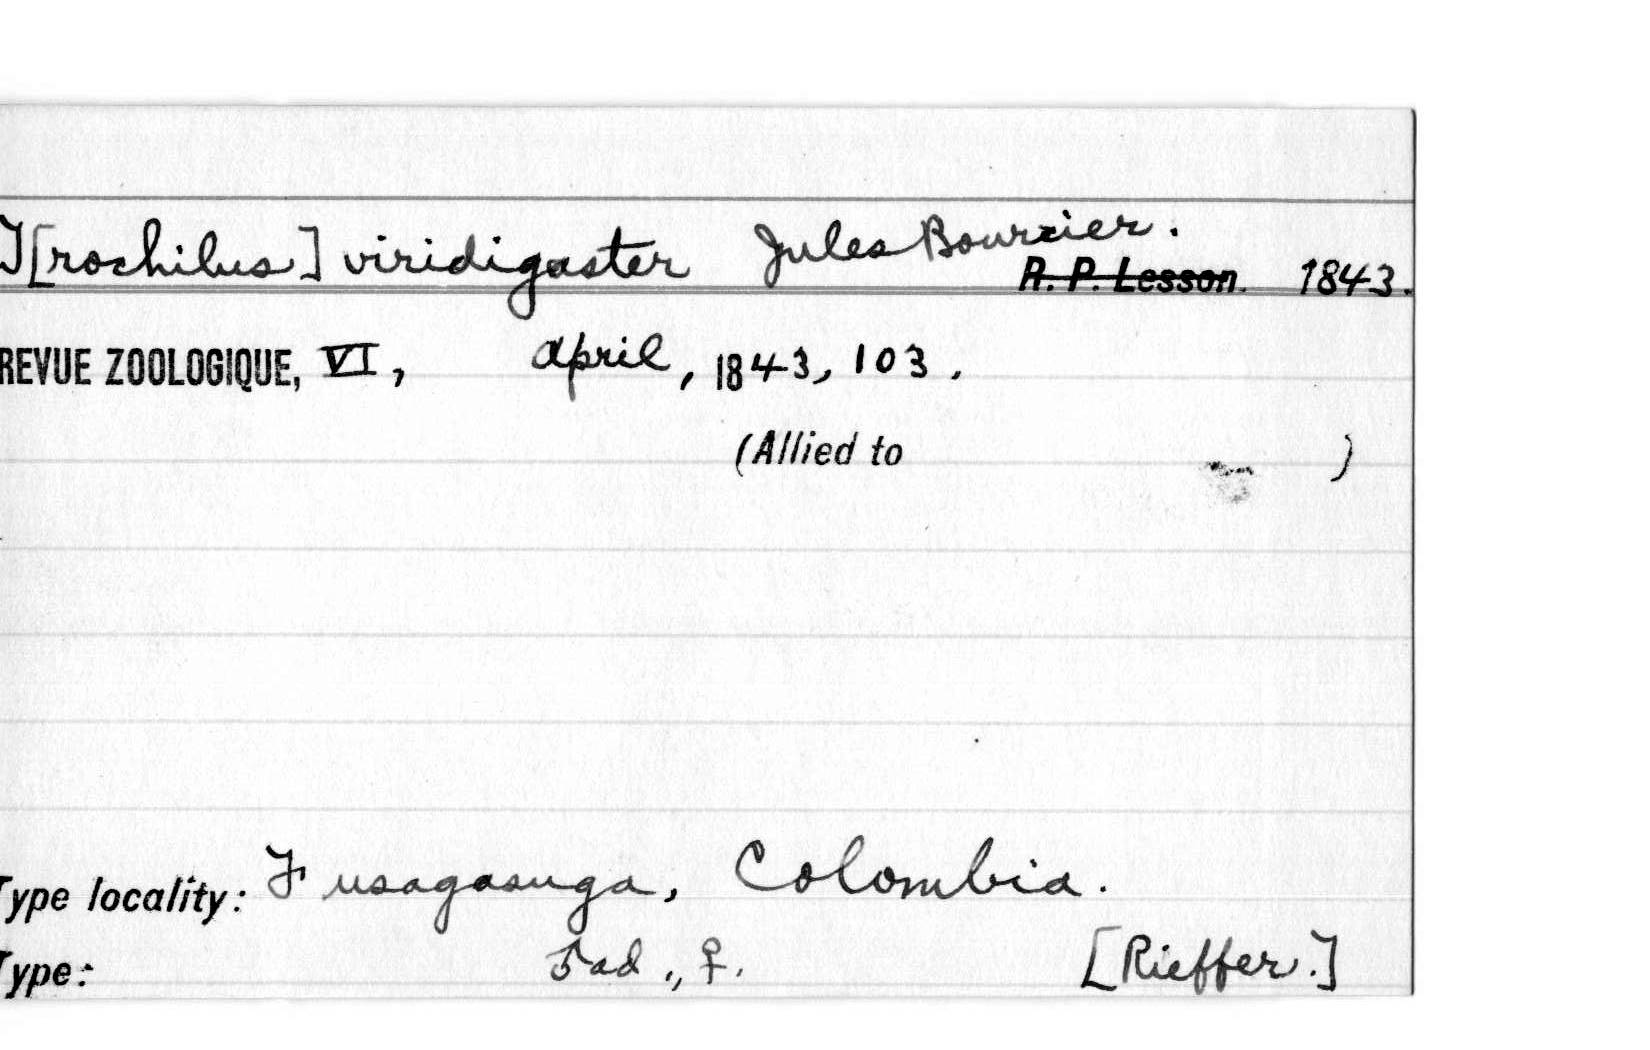 T[rochilus] viridigaster Jules Bourcier.
R. P. Lesson. 1843.
REVUE ZOOLOGIQUE, VI, April, 1843, 103.
(Allied to )
Type locality: Fusagasuga, Colombia.
Type: ♂ad., ♀. [Rieffer.]